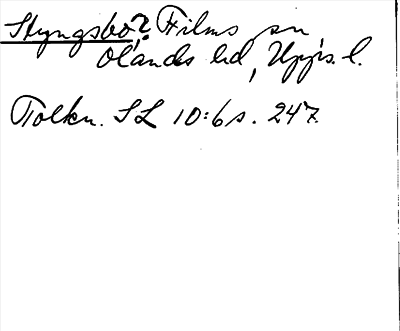 Styngsbo? Films sn,
Olands hd, Upps. l.
Tolkn. SL 10:6 s. 247.